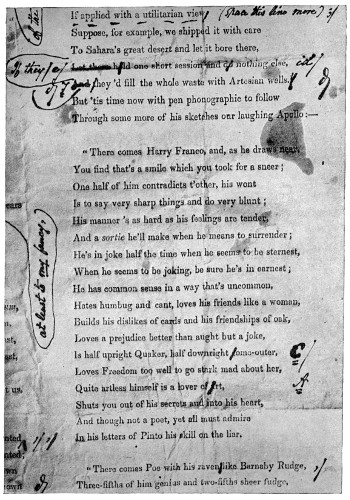 If applied with a utilitarian view; (space this line more)
Suppose, for example, we shipped it with care
To Sahara's great desert and let it bore there,
If they Let them hold one short session and do nothing else,
they'd fill the whole waste with Artesian wells.
But 'tis time now with pen phonographic to follow
Through some more of his sketches our laughing Apollo:—
"There comes Harry Franco, and, as he draws near,
You find that's a smile which you took for a sneer;
One half of him contradicts t'other, his wont
Is to say very sharp things and do very blunt;
His manner's as hard as his feelings are tender,
And a sortie he'll make when he means to surrender;
He's in joke half the time when he seems to be sternest,
When he seems to be joking, be sure he's in earnest;
He has common sense in a way that's uncommon,
Hates humbug and cant, loves his friends like a woman,
Builds his dislikes of cards and his friendships of oak,
Loves a prejudice better than aught but a joke,
Is half upright Quaker, half downright ome-outer, C/
Loves Freedom too well to go stark mad about her,
Quite artless himself is a lover of rt, A
Shuts you out of his secrets and into his heart,
And though not a poet, yet all must admire
In his letters of Pinto his skill on the liar.
"There comes Poe with his raven like Barnaby Rudge,
Three-fifths of him genius and two-fifths sheer fudge,
at least to my fancy,
ears
t us,
nted
nted;
own
own